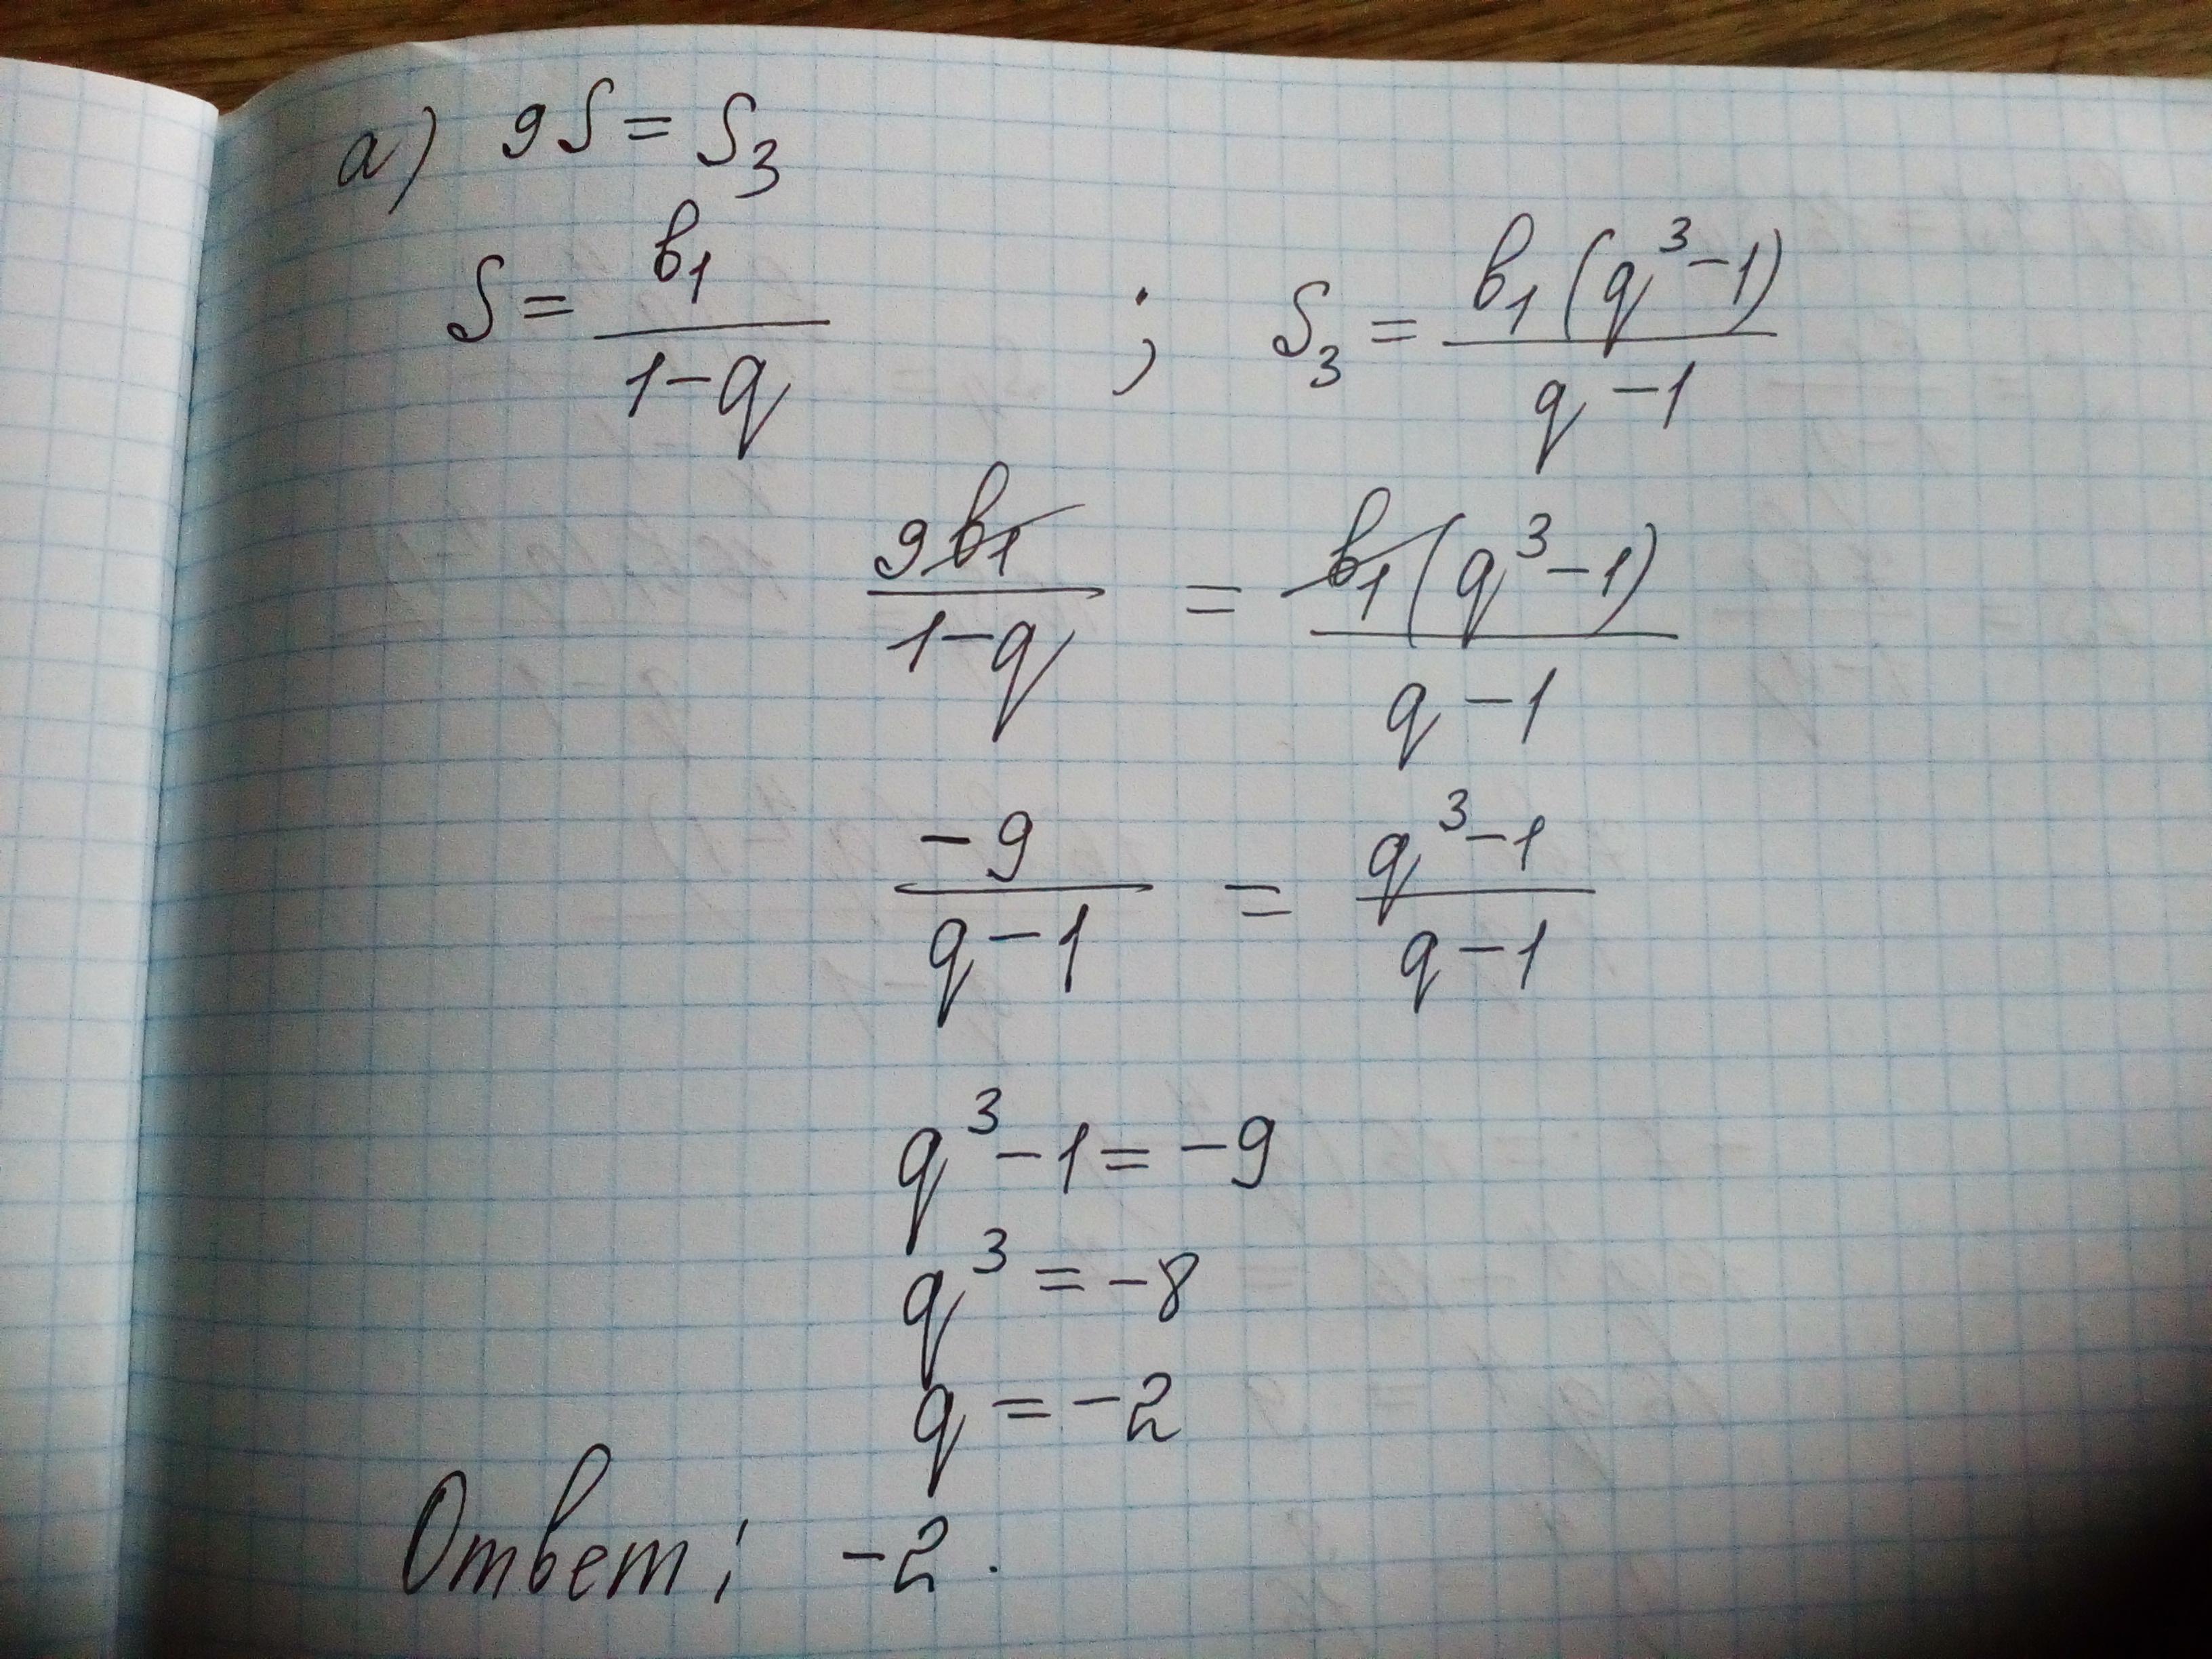 а) 9S = S₃
S = в₁/(1-q) ; S₃ = в₁(q³-1)/(q-1)
9в₁/(1-q) = в₁(q³-1)/(q-1)
-9/(q-1) = (q³-1)/(q-1)
q³-1 = -9
q³ = -8
q = -2
Ответ: -2.